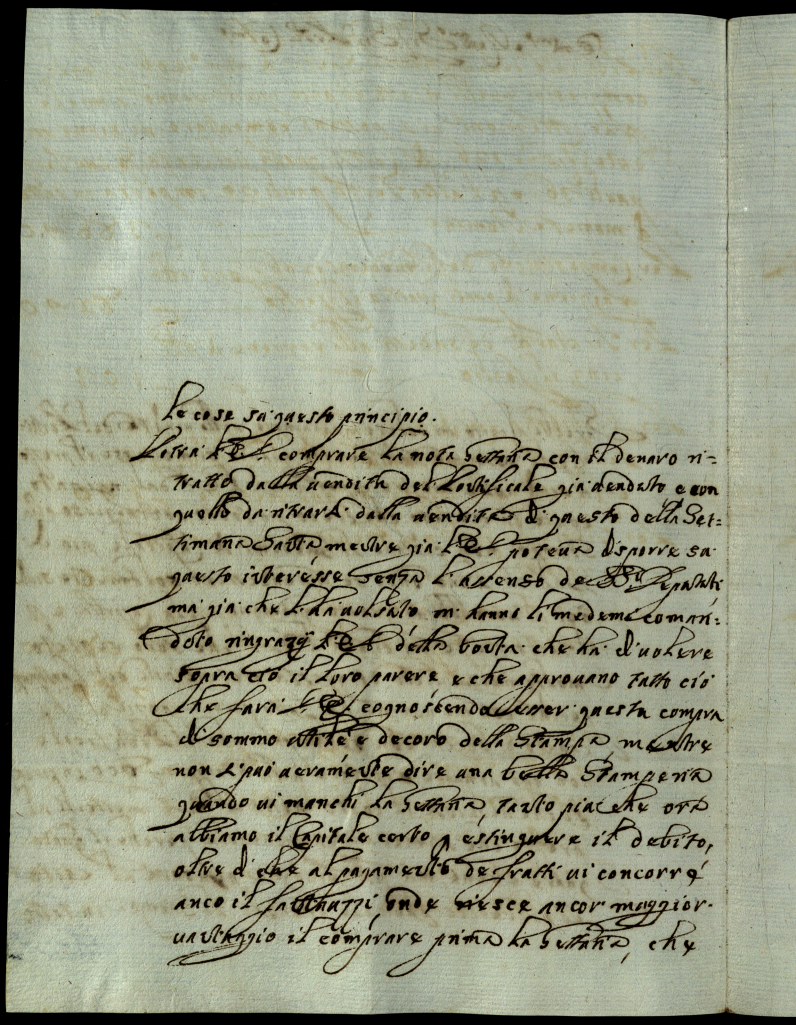 le cose su questo principio.
Potrà V.E. comprare la nota Settana con il denaro ri=
tratto dalla vendita del Pontificale già venduto, e con
quello da ritrarsi dalla vendita di questo della Set=
timana Santa, mentre già V.E. poteva disporre su
questo interesse senza l'assenso de SS.ri Deputati
ma già che l'ha volsuto m'hanno li medemi coman=
dato ringrazij V.E. della bontà che ha di volere
sopra ciò il loro parere e che approvano tutto ciò
che farà V.E. cognoscendo esser questa compra
di sommo utile e decoro della Stampa, mentre
non si può veramente dire una bella Stamperia
quando vi manchi la Settana tanto più che ora
abbiamo il Capitale certo p estinguere il debito,
oltre di che al pagamento de frutti vi concorre
anco il onde riesce ancor maggior
vantaggio il comprare prima la Settana, che